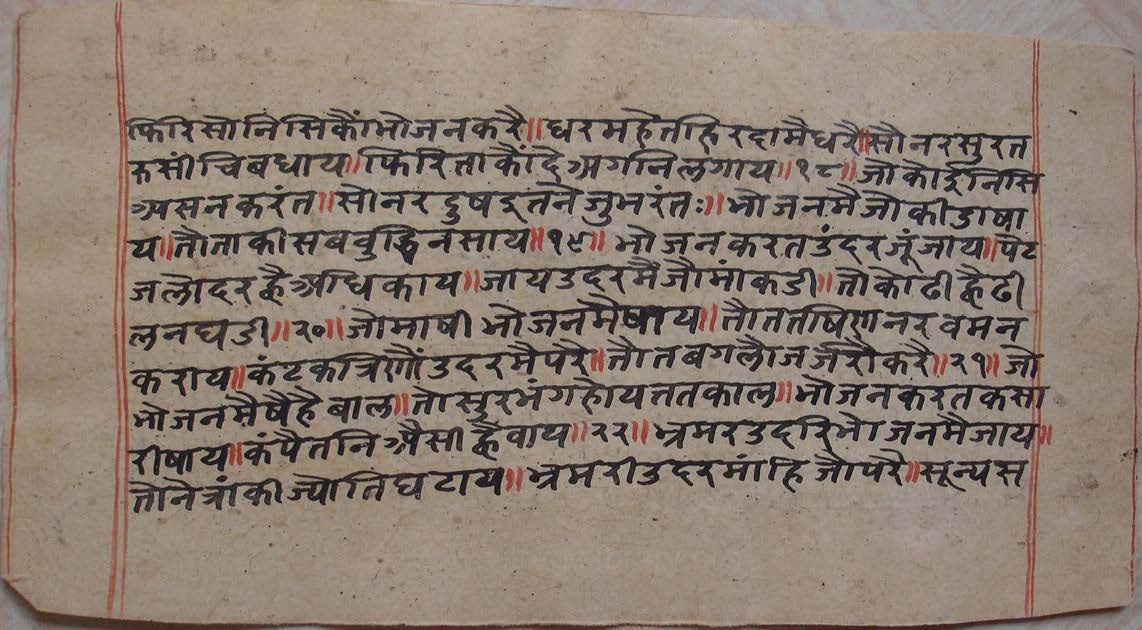 फिरिसोनिसिकौंभोजनकरै॥घरमहेतहिरदामैधरै॥सोनरसुरत
रुसींचिबधाय॥फिरिताकौंदैअगनिलगाय॥१८॥जोकोईनिसि
असनकरंत॥सोनरदुषइतनैजुभरंतः॥भोजनमैजोकीडाषा
य॥तौताकीसबबुद्धिनसाय॥१९॥भोजनकरतउंदरजूंजाय॥पेट
जलोदरह्वैअधिकाय॥जायउदरमैंजोमांकडी॥तोकोढीह्वैढी
लनघडी॥२०॥जोमाषीभोजनमैषाय॥तौततषिणनरवमन
कराय॥कंटकत्रिणौंउदरमैपरै॥तौतबगलोजर्जरौकरै॥२१॥जो
भोजनमैषैहैबाल॥तोसुरभंगहोयततकाल॥भोजनकरतकसा
रीषाय॥कंपैतनिअैसीह्वैवाय॥२२॥भ्रमरउदरिभोजनमैजाय॥
तोनेत्रांकीज्योतिघटाय॥भ्रमरीउदरमांहिजोपरै॥सून्यस